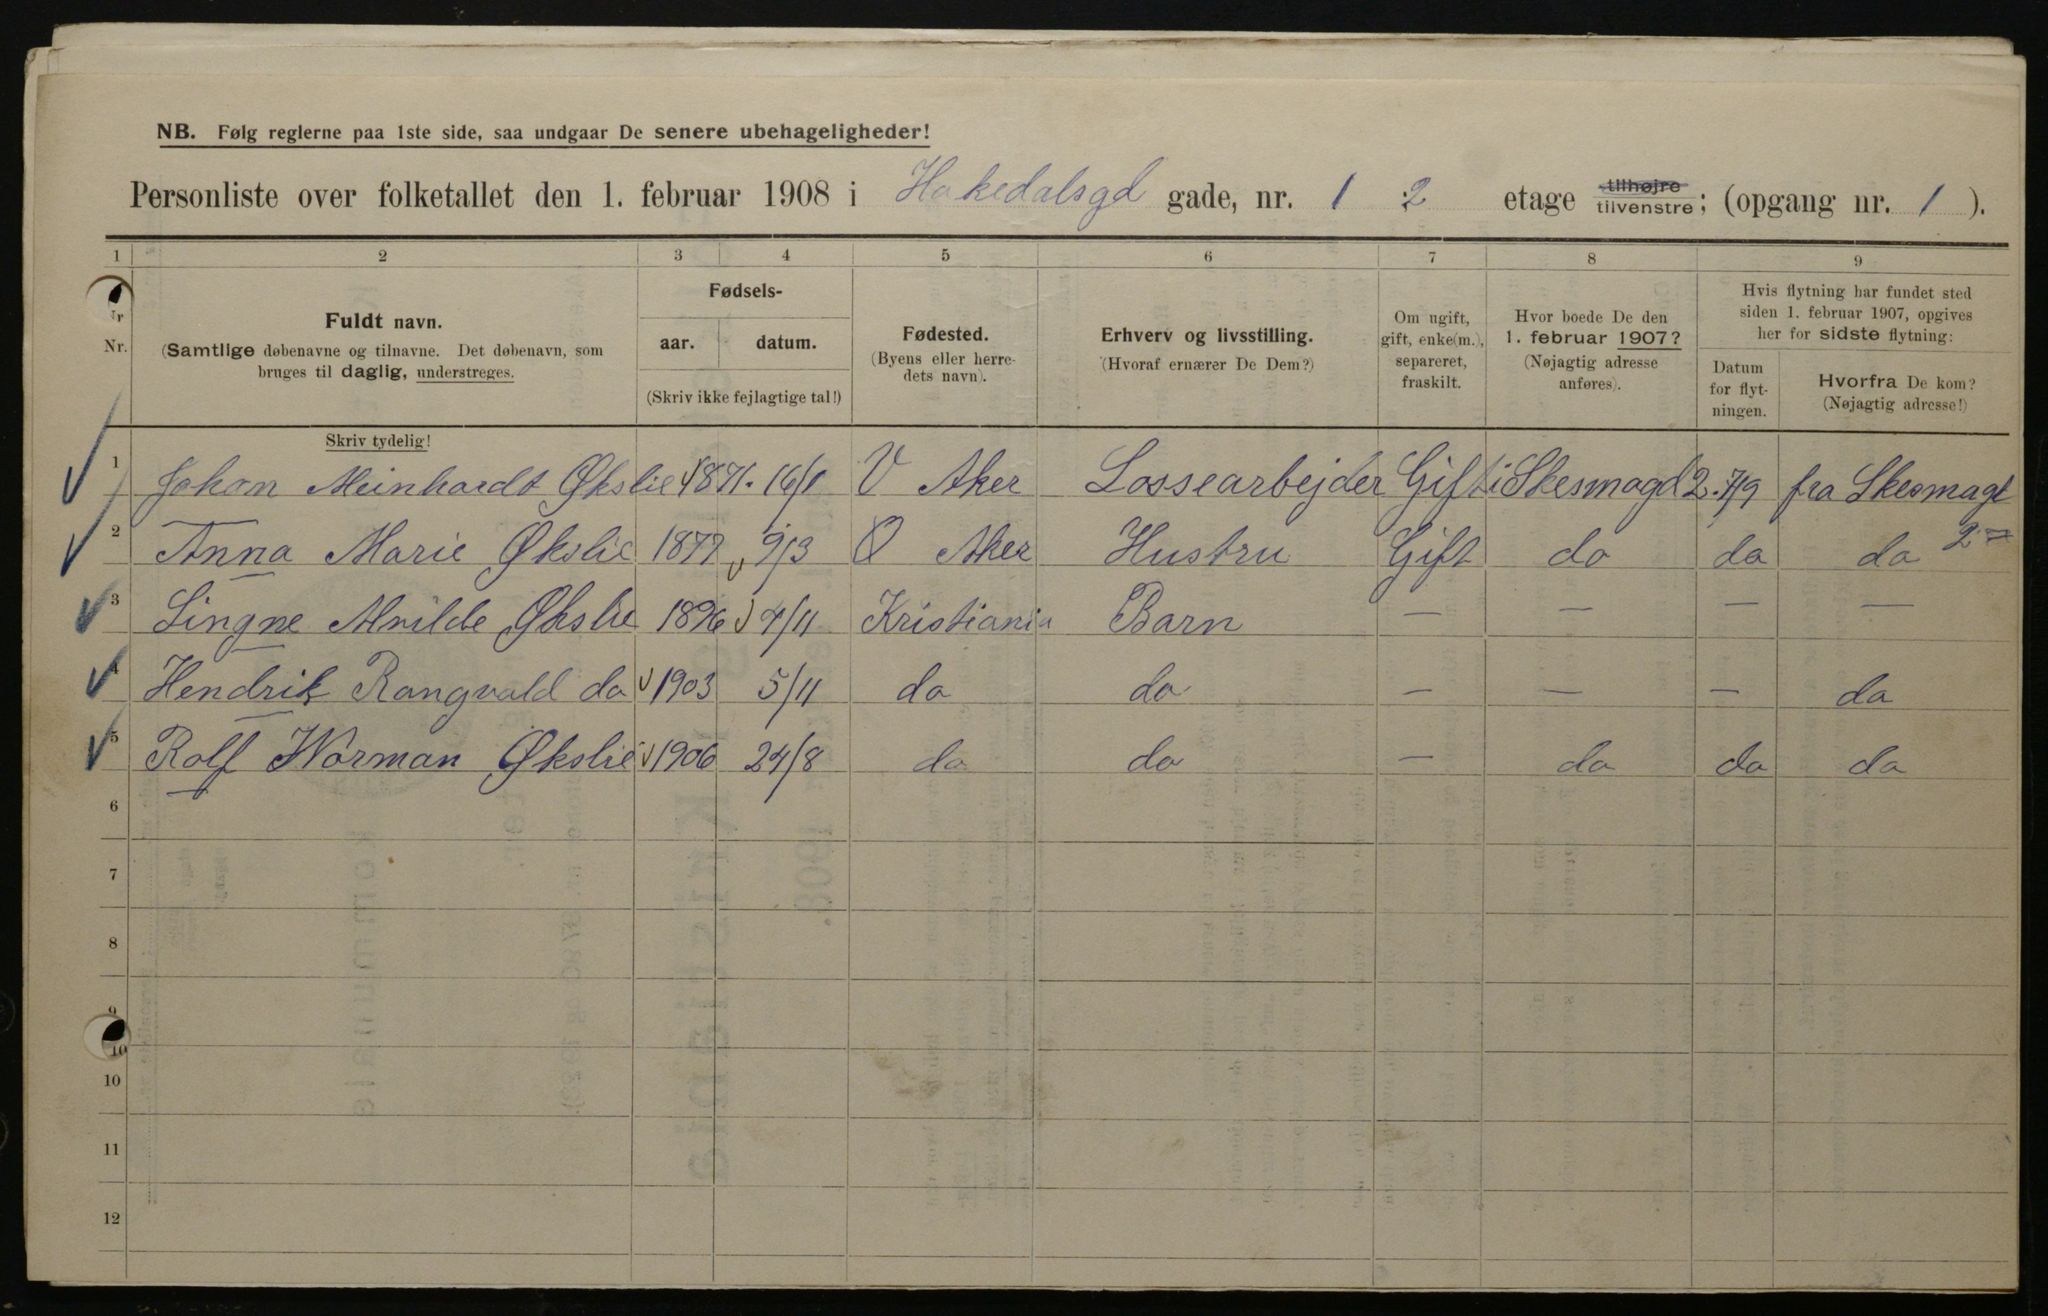 NB. Følg reglerne paa 1ste side, saa undgaar De senere ubehageligheder!
Personliste over folketallet den 1. februar 1908 i Hakedalsgd gade, nr. 1 2 etage tilhøjre tilvenstre; (opgang nr. 1 ).
1 2 3 4 5 6 7 8 9
Nr.
Fuldt navn.
(Samtlige døbenavne og tilnavne. Det døbenavn, som
bruges til daglig, understreges.
Skriv tydelig!
Fødsels-
aar. datum.
(Skriv ikke fejlagtige tal!)
Fødested.
(Byens eller herre-
dets navn).
Erhverv og livsstilling.
(Hvoraf ernærer De Dem?)
Om ugift,
gift, enke(m.),
separeret,
fraskilt.
Hvor boede De den
1. februar 1907?
(Nøjagtig adresse
anføres).
Hvis flytning har fundet sted
siden 1. februar 1907, opgives
her for sidste flytning:
Datum
for flyt-
ningen.
Hvorfra De kom?
(Nøjagtig adresse!)
1 Johan Meinhardt Økslie 1871. 16/1 V Aker Lossearbejder Gift i Skesmogd 2. 7/9 fra Skesmagt 27
2 Anna Marie Økslie 1877 9/3 Ø Aker Hustru Gift do da da
3 Singne Alvilde Økslie 1896 4/11 Kristiania Barn — — — —
4 Hendrik Rangvald do 1903 5/11 do do — — — da
5 Rolf Norman Økslie 1906 24/8 do do — da da da
6
7
8
9
10
10
11
12